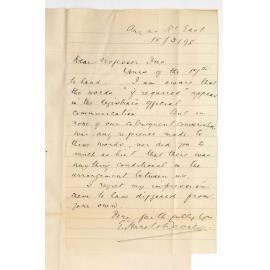 St East
15/3/95
Dear Professor
Yours of the 14th
to hand. I am aware that
the words "if required" appear
in the legislative official
communication. But in
none of our subsequent conversations
was any reference made to
these words, nor did you so
much as hint that there was
anything conditional in the
arrangement between us.
I regret my impressions
seem to have differed from
your own.
Very faithfully yours
E. Harold Davies